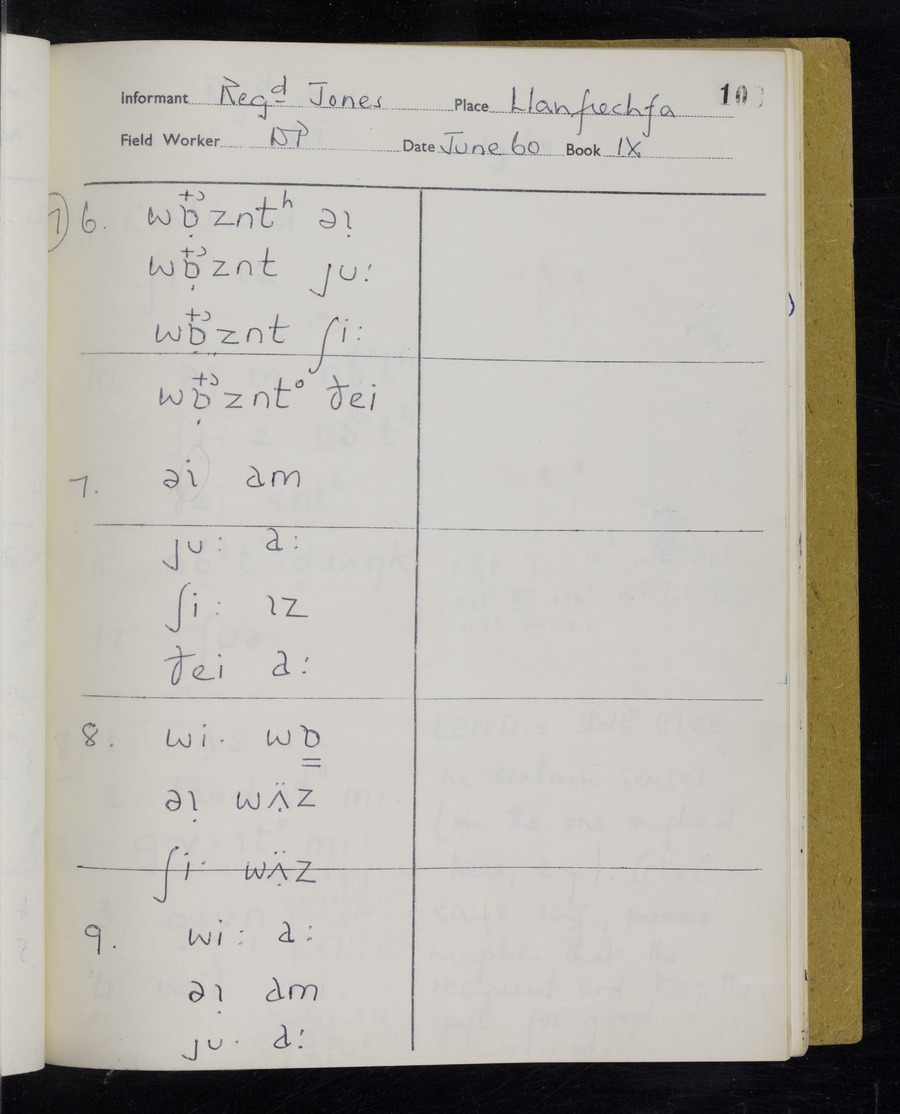 Informant Regd Jones Place Llanfrechfa 103
Field Worker DP Date June 60 Book IX
7) 6. wɒ̣zntʰ əɪ
wɒ̣znt ju:
wɒ̣znt ʃi:
wɒ̣znt° ðei
7. əi am
ju: a:
ʃi: ɪz
ðei a:
8. wi· wɒ
əɪ wʌ̈z
ʃi· wʌ̈z
9. wi: a:
əɪ am
ju· a: